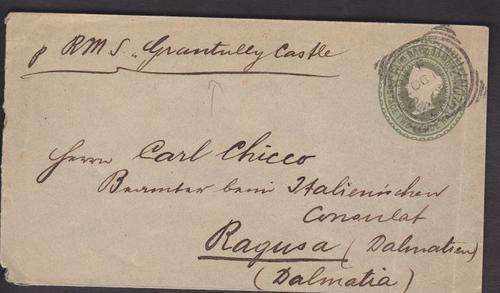 p RMS „Grantully Castle
Herrn Carl Chicco
Beamter beim Italienischen
Consulat
Ragusa (Dalmatien)
(Dalmatia)